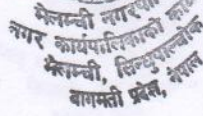 मेलम्ची नगरपा
नगर कार्यपालिकाको का
मेलम्ची, सिन्धुपाल्चोक
बागमती प्रदेश, नेपाल